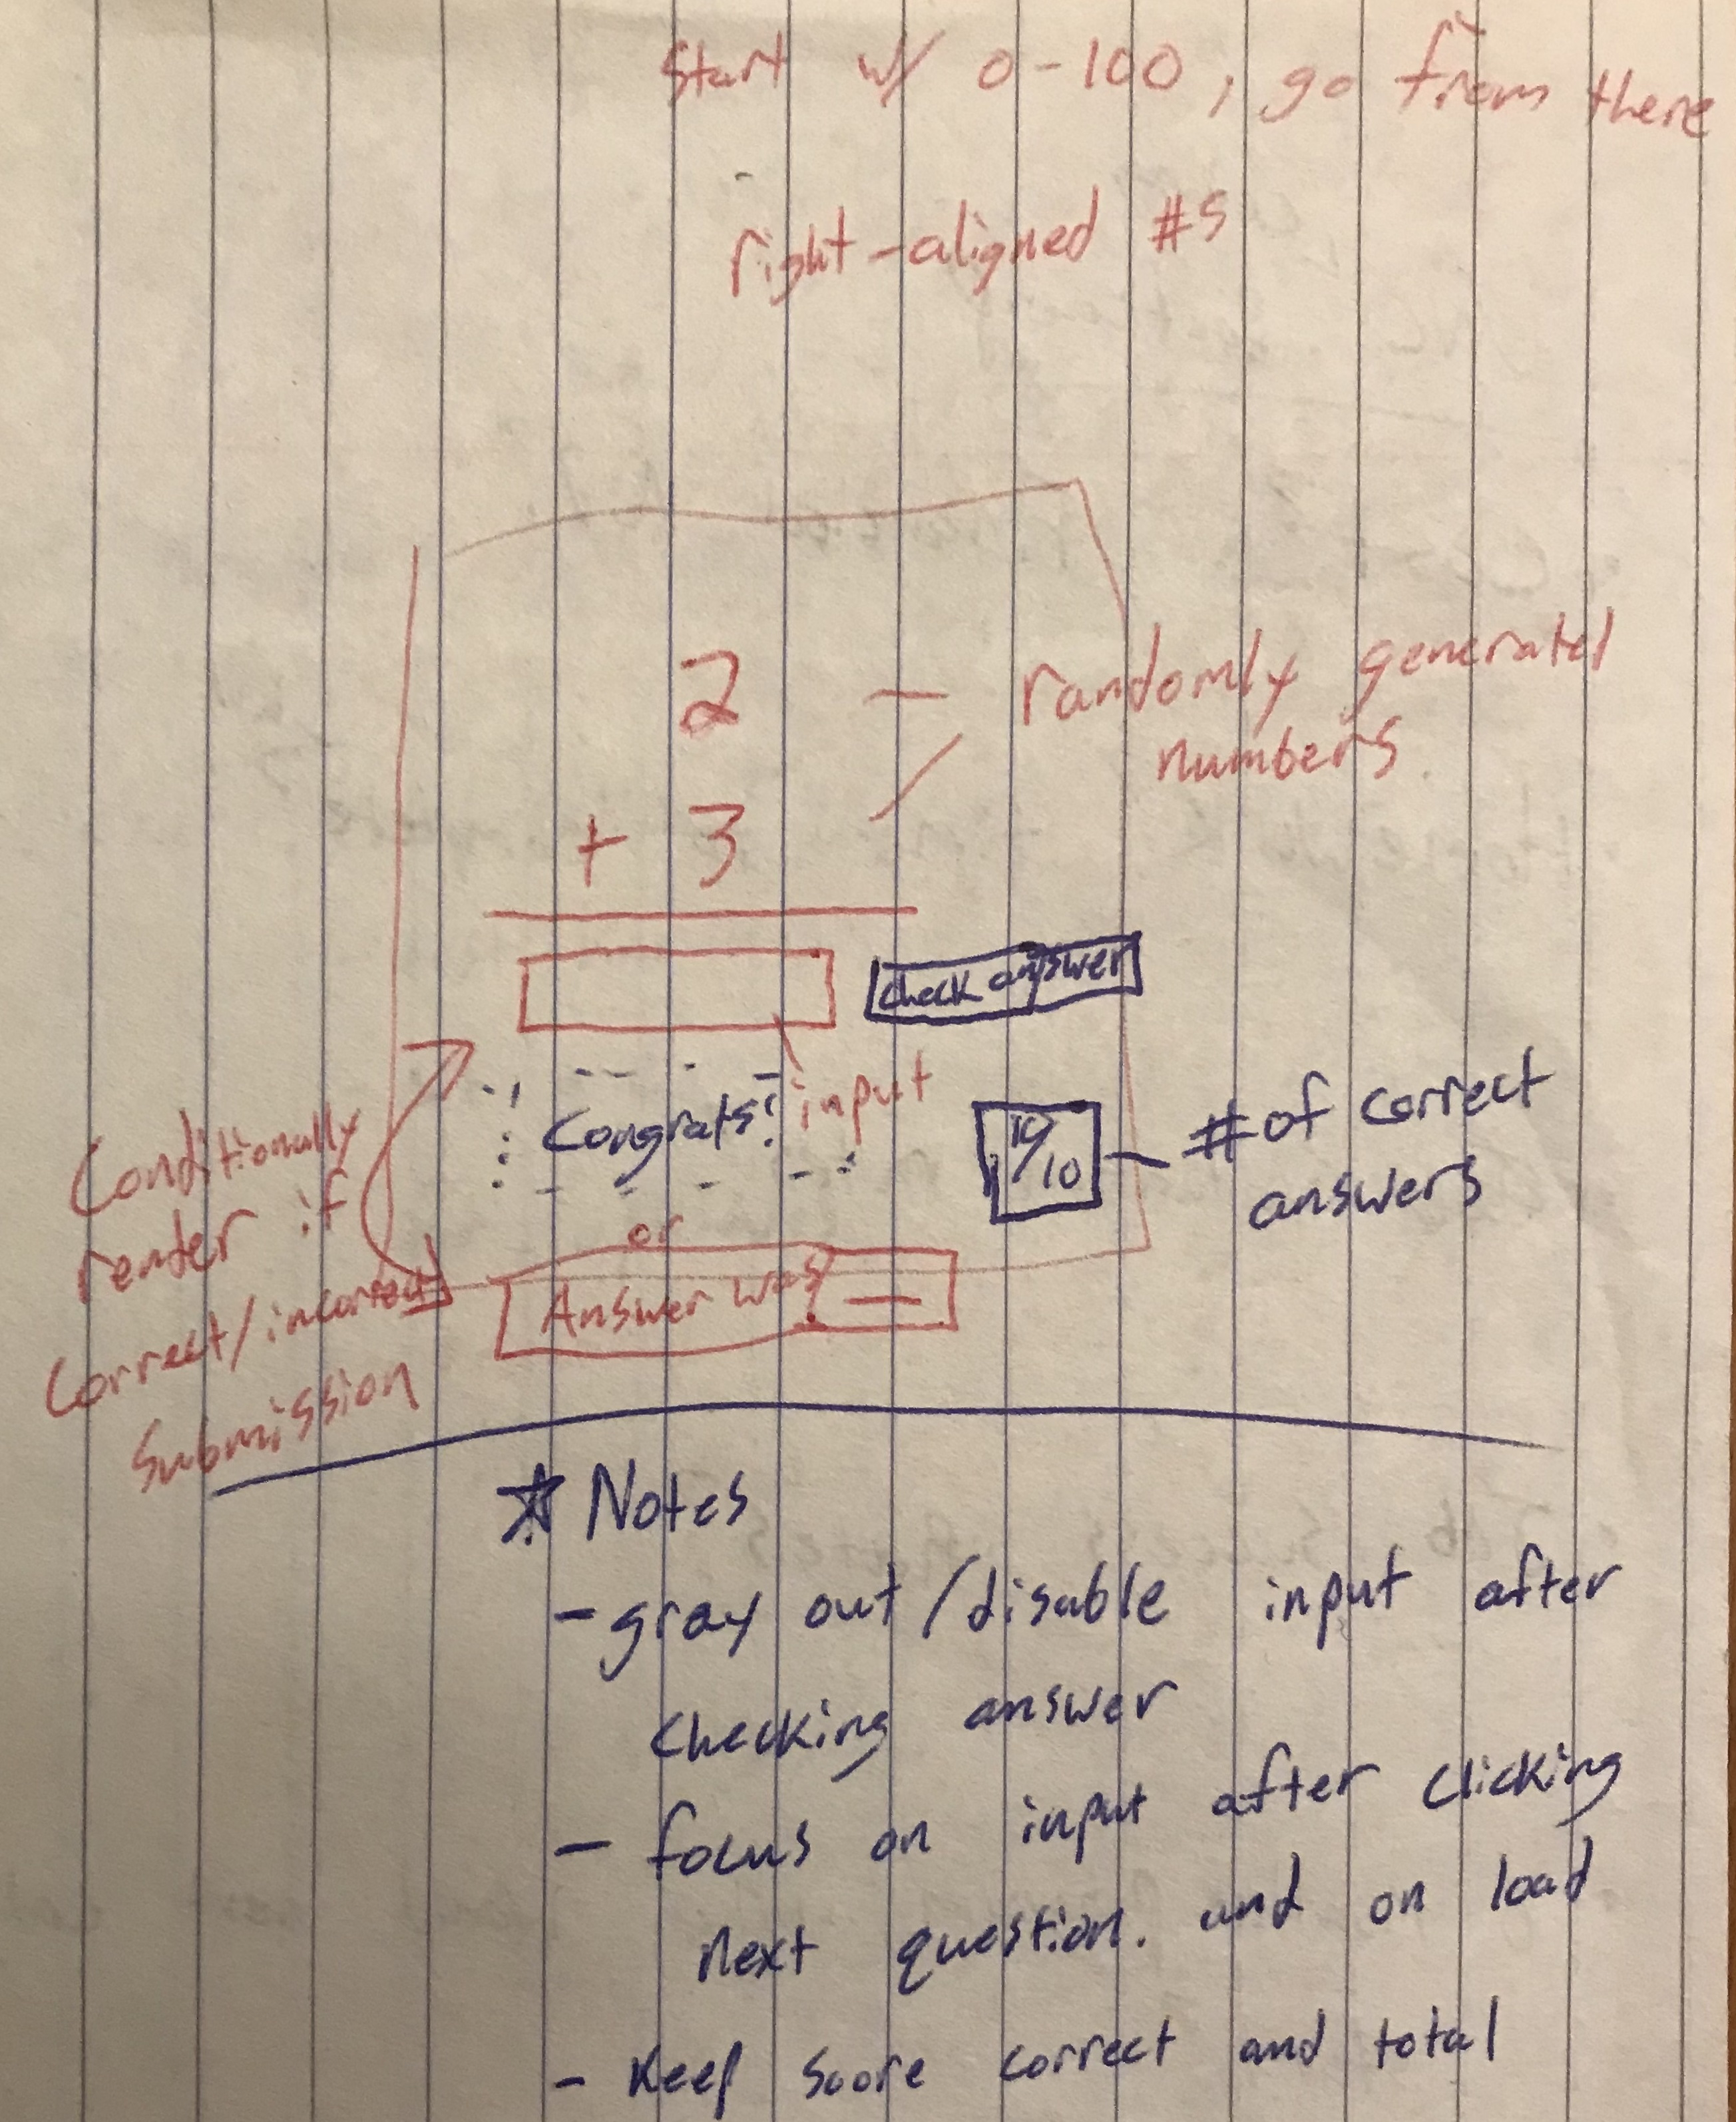 Start w/ 0-100, go from there
right-aligned #s
2 — randomly generated
numbers
+ 3
check answer
input
Congrats!
10/10 — # of correct
answers
or
Answer was
Conditionally
render if
correct/incorrect
submission
☆ Notes
- gray out/disable input after
checking answer
- focus on input after clicking
next question. and on load
- Keep score correct and total